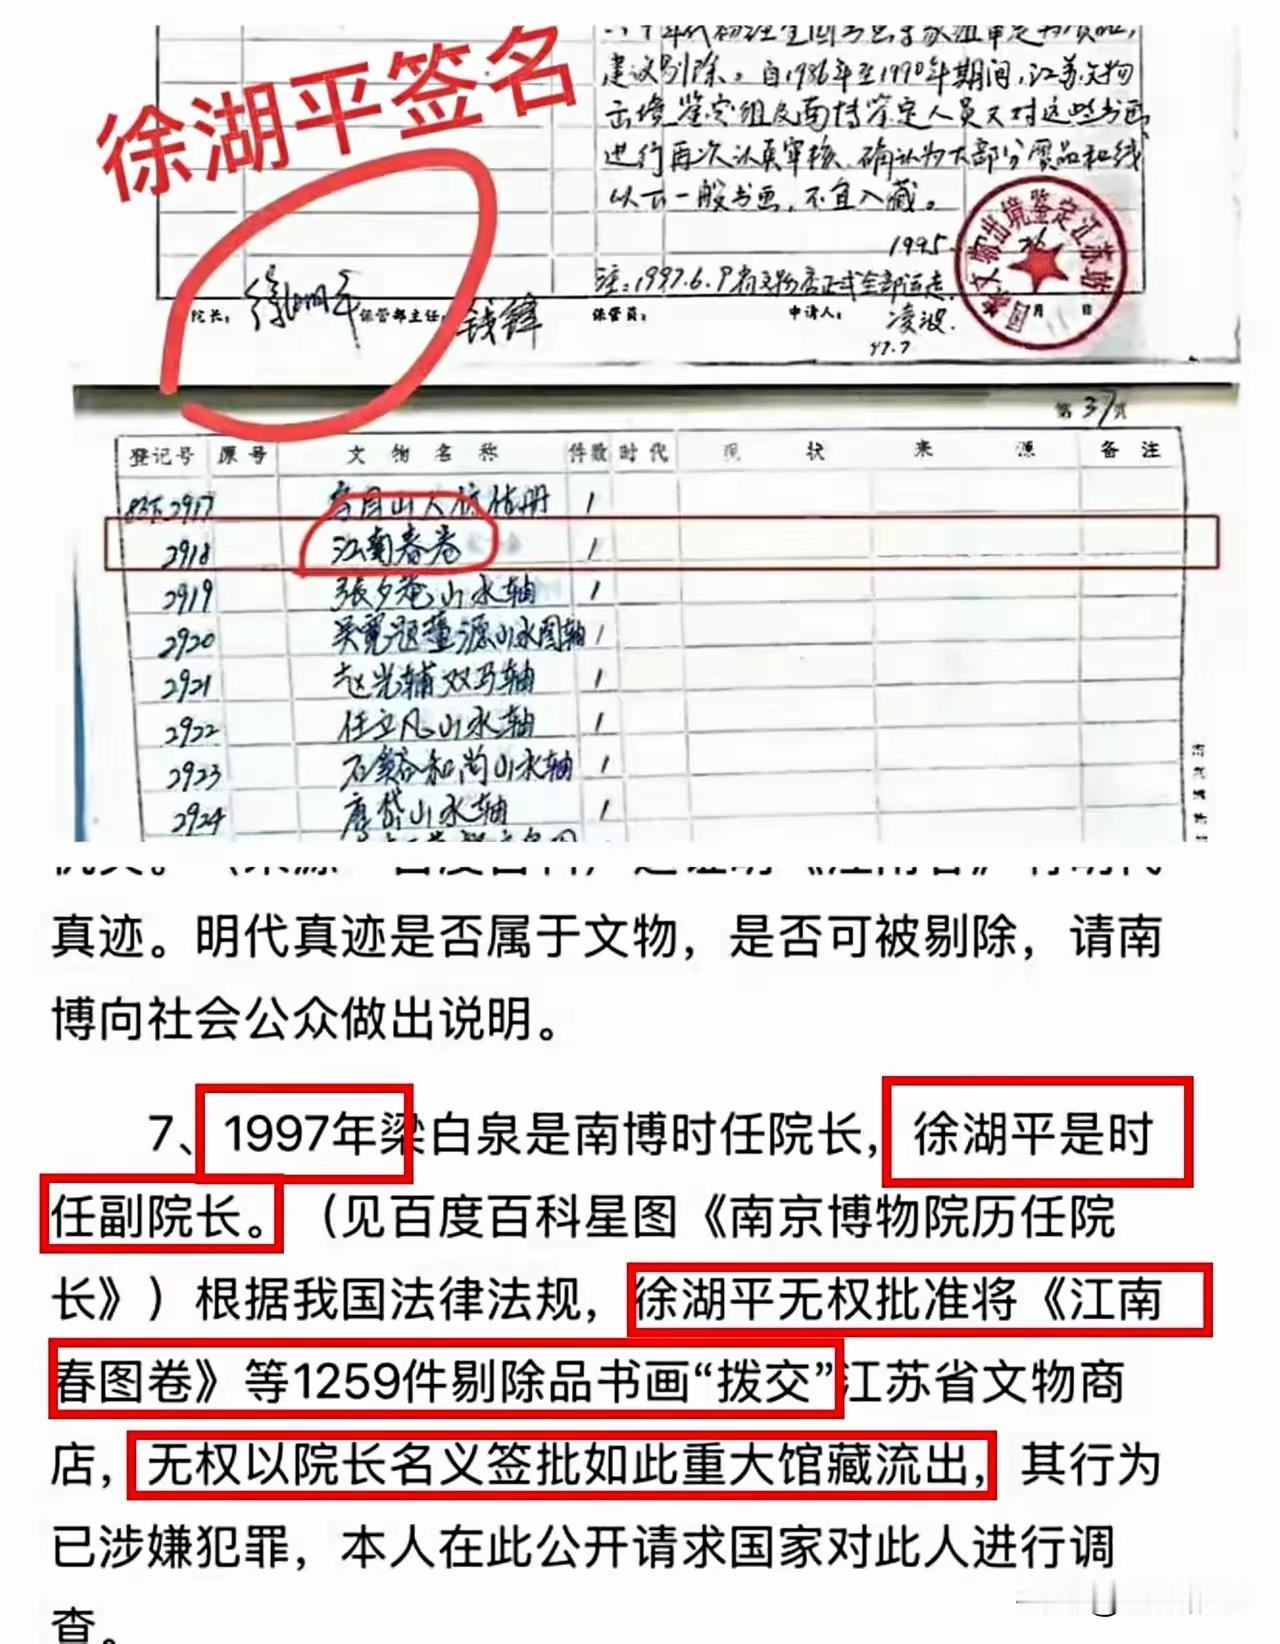 徐湖平签名
建议剔除。自1986年至1990年期间,江苏文物
出境鉴定组及南博鉴定人员又对这些书画
进行再次认真审核,确认为大部分赝品和线
以下一般书画,不宜入藏。
1995.
国家文物出境鉴定江苏站
月 日
注:1997.6.9
院长: 徐湖平 保管部主任: 钱锋 保管员: 申请人: 凌波.
97.7
第37页
登记号 原号 文物名称 件数 时代 现状 来源 备注
2917 1
2918 江南春卷 1
2919 张夕庵山水轴 1
2920 吴宽题董源山水图轴 1
2921 赵光辅双马轴 1
2922 任立凡山水轴 1
2923 石溪和尚山水轴 1
2924 唐岱山水轴 1
真迹。明代真迹是否属于文物,是否可被剔除,请南
博向社会公众做出说明。
7、1997年梁白泉是南博时任院长,徐湖平是时
任副院长。(见百度百科星图《南京博物院历任院
长》)根据我国法律法规,徐湖平无权批准将《江南
春图卷》等1259件剔除品书画“拨交”江苏省文物商
店,无权以院长名义签批如此重大馆藏流出,其行为
已涉嫌犯罪,本人在此公开请求国家对此人进行调
查。